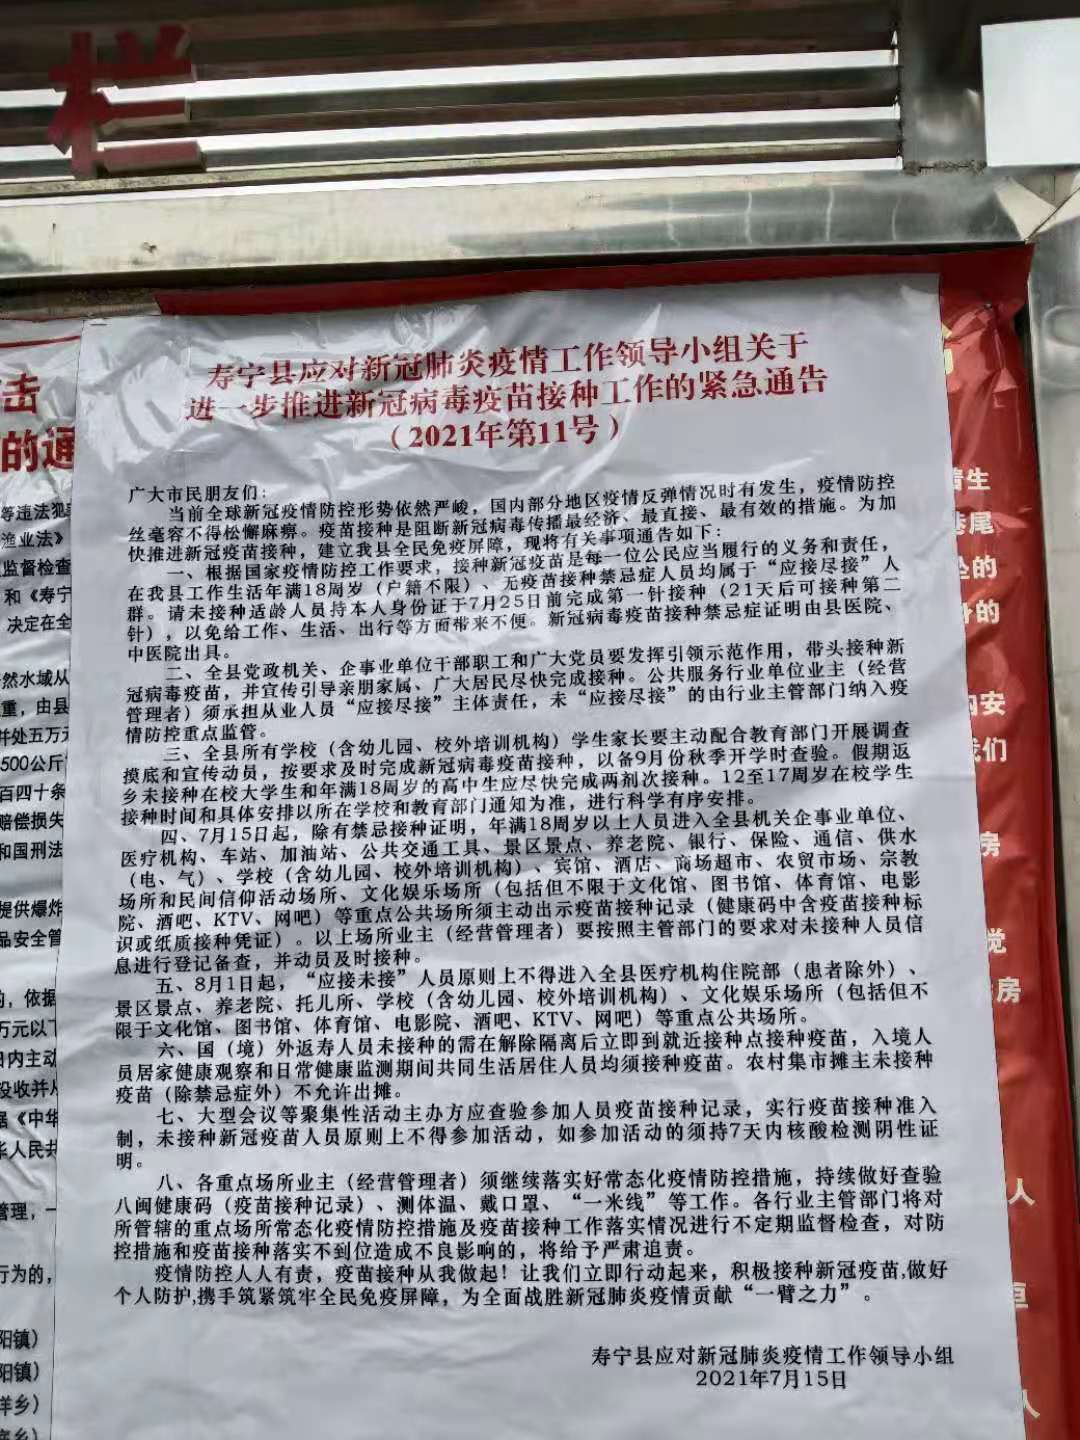 栏
寿宁县应对新冠肺炎疫情工作领导小组关于
进一步推进新冠病毒疫苗接种工作的紧急通告
（2021年第11号）
广大市民朋友们：
当前全球新冠疫情防控形势依然严峻，国内部分地区疫情反弹情况时有发生，疫情防控
丝毫容不得松懈麻痹。疫苗接种是阻断新冠病毒传播最经济、最直接、最有效的措施。为加
快推进新冠疫苗接种，建立我县全民免疫屏障，现将有关事项通告如下：
一、根据国家疫情防控工作要求，接种新冠疫苗是每一位公民应当履行的义务和责任，
在我县工作生活年满18周岁（户籍不限）、无疫苗接种禁忌症人员均属于“应接尽接”人
群。请未接种适龄人员持本人身份证于7月25日前完成第一针接种（21天后可接种第二
针），以免给工作、生活、出行等方面带来不便。新冠病毒疫苗接种禁忌症证明由县医院、
中医院出具。
二、全县党政机关、企事业单位干部职工和广大党员要发挥引领示范作用，带头接种新
冠病毒疫苗，并宣传引导亲朋家属、广大居民尽快完成接种。公共服务行业单位业主（经营
管理者）须承担从业人员“应接尽接”主体责任，未“应接尽接”的由行业主管部门纳入疫
情防控重点监管。
三、全县所有学校（含幼儿园、校外培训机构）学生家长要主动配合教育部门开展调查
摸底和宣传动员，按要求及时完成新冠病毒疫苗接种，以备9月份秋季开学时查验。假期返
乡未接种在校大学生和年满18周岁的高中生应尽快完成两剂次接种。12至17周岁在校学生
接种时间和具体安排以所在学校和教育部门通知为准，进行科学有序安排。
四、7月15日起，除有禁忌接种证明，年满18周岁以上人员进入全县机关企事业单位、
医疗机构、车站、加油站、公共交通工具、景区景点、养老院、银行、保险、通信、供水
（电、气）、学校（含幼儿园、校外培训机构）、宾馆、酒店、商场超市、农贸市场、宗教
场所和民间信仰活动场所、文化娱乐场所（包括但不限于文化馆、图书馆、体育馆、电影
院、酒吧、KTV、网吧）等重点公共场所须主动出示疫苗接种记录（健康码中含疫苗接种标
识或纸质接种凭证）。以上场所业主（经营管理者）要按照主管部门的要求对未接种人员信
息进行登记备查，并动员及时接种。
五、8月1日起，“应接未接”人员原则上不得进入全县医疗机构住院部（患者除外）、
景区景点、养老院、托儿所、学校（含幼儿园、校外培训机构）、文化娱乐场所（包括但不
限于文化馆、图书馆、体育馆、电影院、酒吧、KTV、网吧）等重点公共场所。
六、国（境）外返寿人员未接种的需在解除隔离后立即到就近接种点接种疫苗，入境人
员居家健康观察和日常健康监测期间共同生活居住人员均须接种疫苗。农村集市摊主未接种
疫苗（除禁忌症外）不允许出摊。
七、大型会议等聚集性活动主办方应查验参加人员疫苗接种记录，实行疫苗接种准入
制，未接种新冠疫苗人员原则上不得参加活动，如参加活动的须持7天内核酸检测阴性证
明。
八、各重点场所业主（经营管理者）须继续落实好常态化疫情防控措施，持续做好查验
八闽健康码（疫苗接种记录）、测体温、戴口罩、“一米线”等工作。各行业主管部门将对
所管辖的重点场所常态化疫情防控措施及疫苗接种工作落实情况进行不定期监督检查，对防
控措施和疫苗接种落实不到位造成不良影响的，将给予严肃追责。
疫情防控人人有责，疫苗接种从我做起！让我们立即行动起来，积极接种新冠疫苗,做好
个人防护,携手筑紧筑牢全民免疫屏障，为全面战胜新冠肺炎疫情贡献“一臂之力”。
寿宁县应对新冠肺炎疫情工作领导小组
2021年7月15日
击
的通
等违法犯
渔业法》
监督检查
和《寿宁
决定在全
然水域从
重，由县
并处五万元
500公斤
百四十条
赔偿损失
和国刑法
提供爆炸
品安全管
的，依据
万元以下
日内主动
没收并从
据《中华
华人民共
管理，一
行为的，
阳镇）
阳镇）
乡）
乡）
生
尾
的
的
内安
我们
房
觉
房
人
人